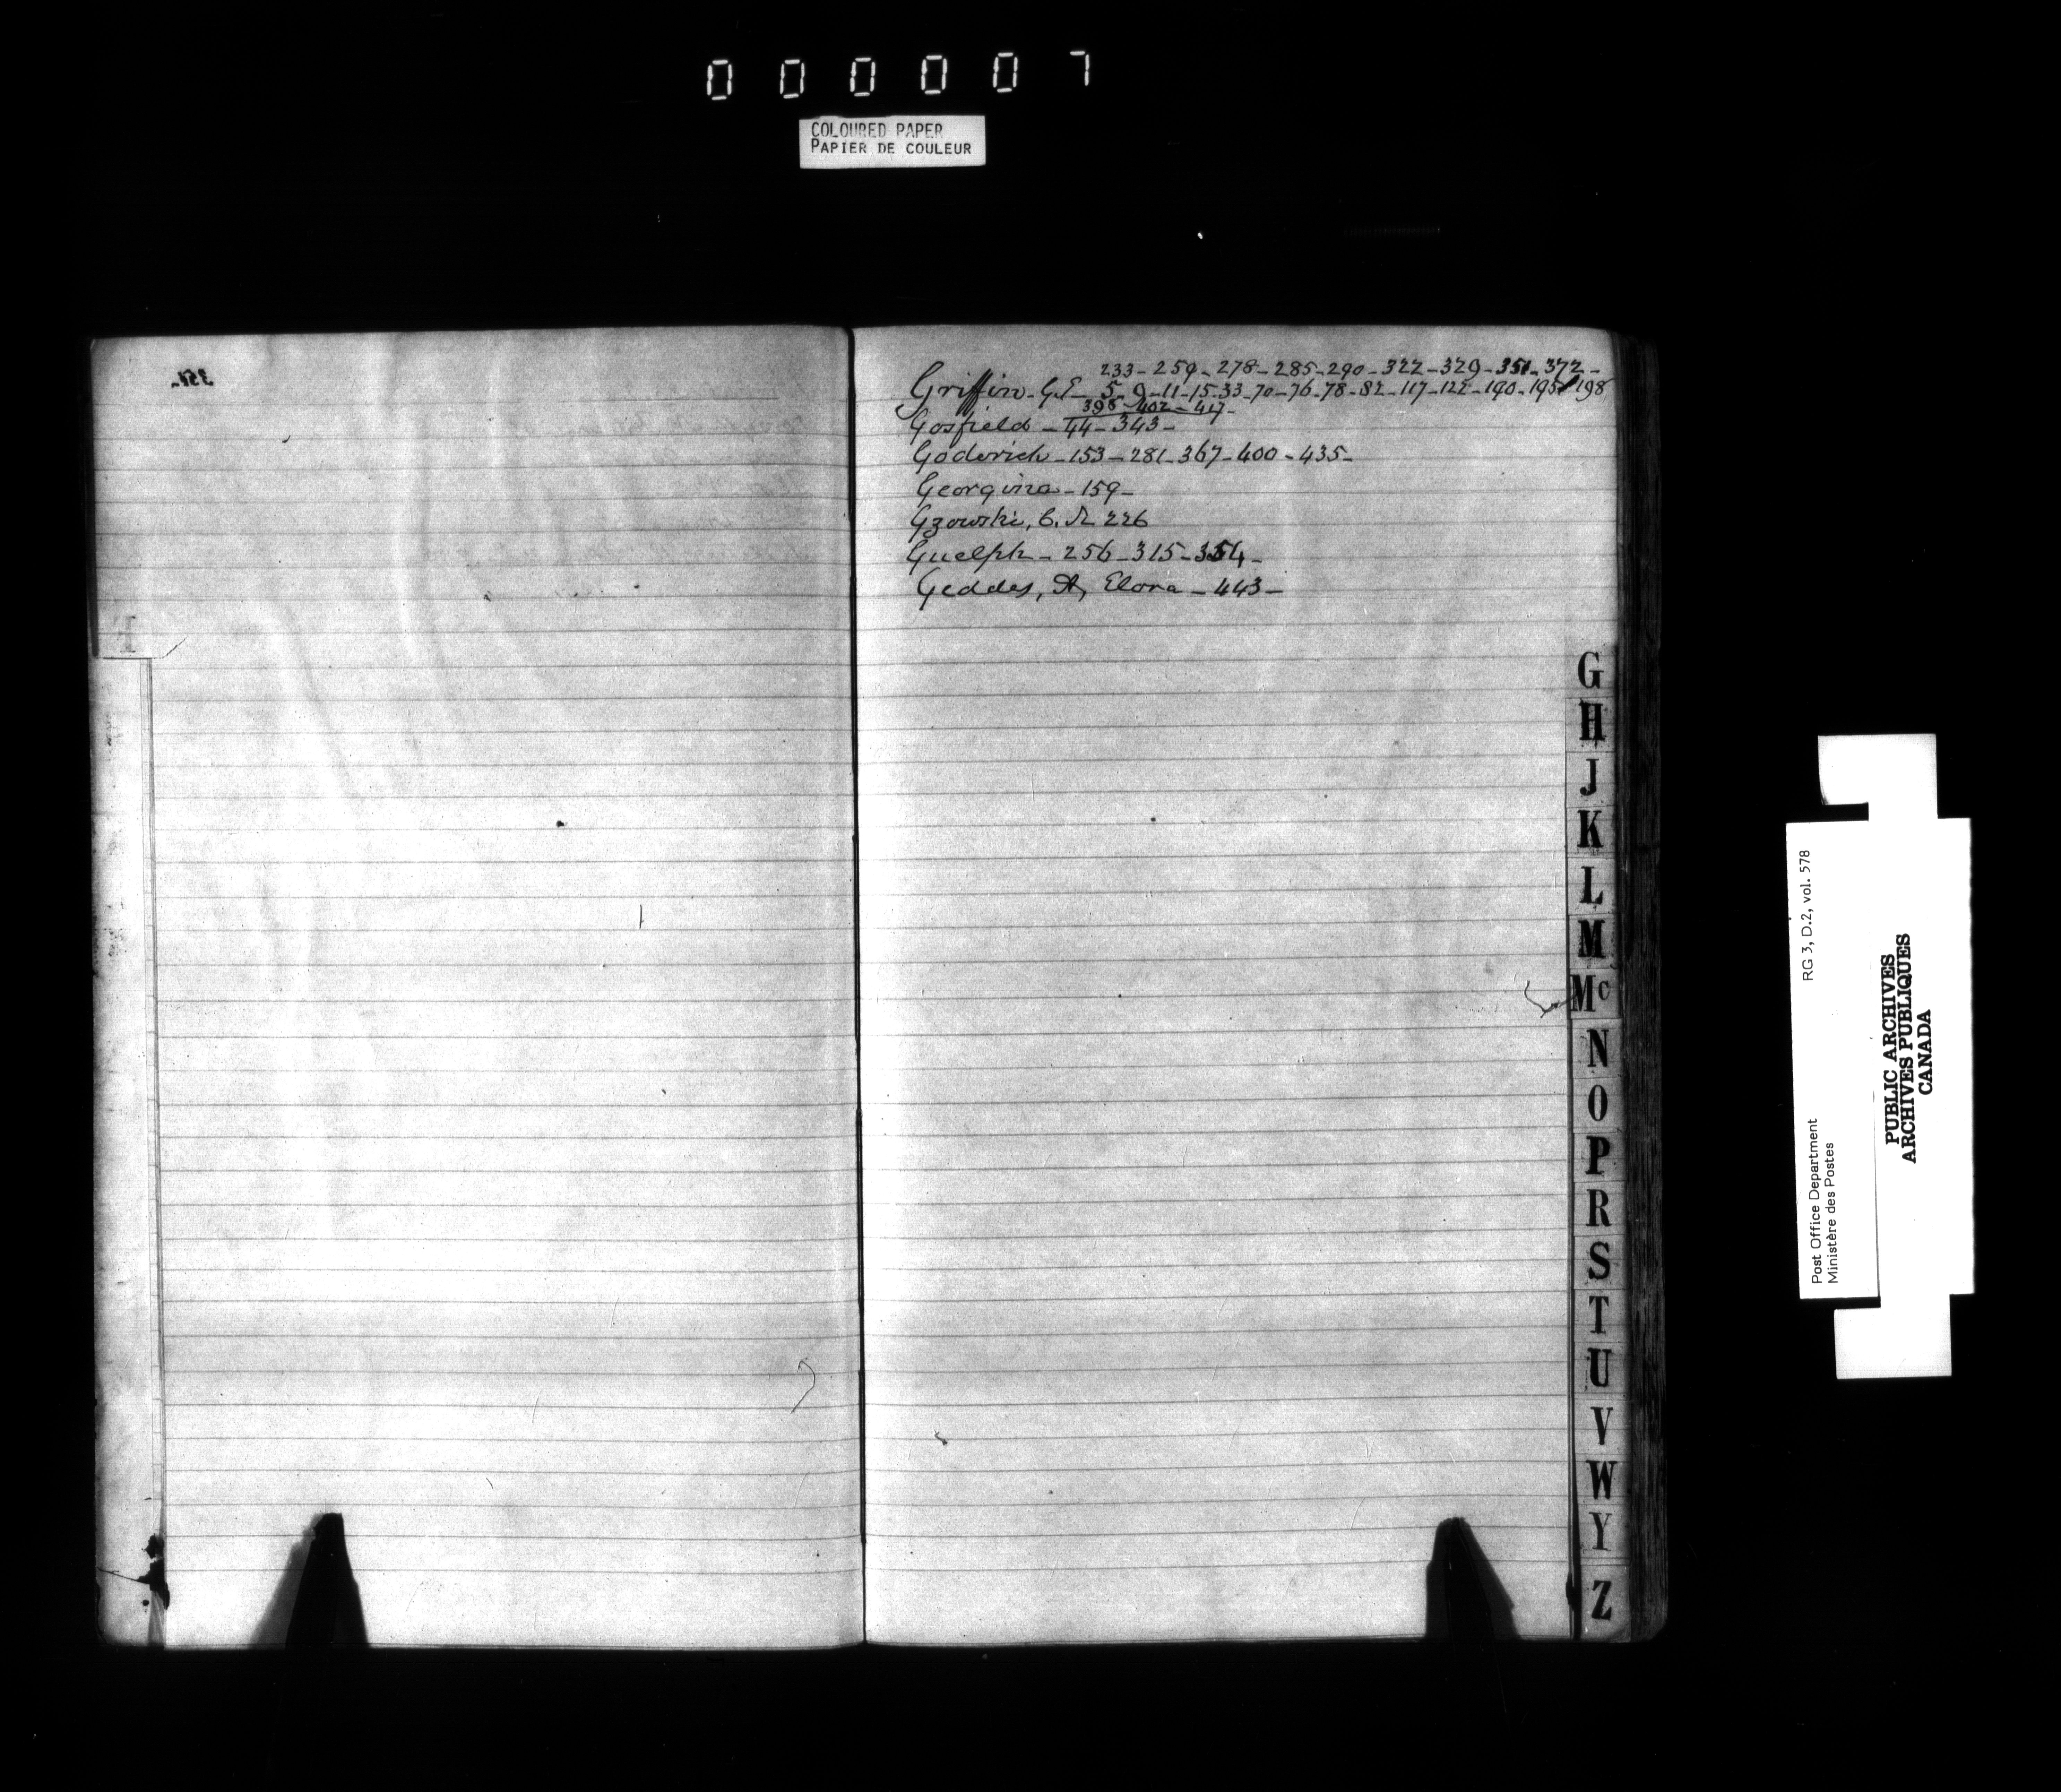 000007
COLOURED PAPER
PAPIER DE COULEUR
351-
233-259-278-285-290-322-329-351-372-
Griffin-G.E-5-9-11-15-33-70-76-78-82-117-122-190-195-198
398-402-417-
Gosfield-44-343-
Goderich-153-281-367-400-435-
Georgina-159-
Gzowski, C. S. 226
Guelph-256-315-354-
Geddes, A, Elora-443-
G
H
J
K
L
M
Mc
N
O
P
R
S
T
U
V
W
Y
Z
Post Office Department RG 3, D.2, vol. 578
Ministère des Postes
PUBLIC ARCHIVES
ARCHIVES PUBLIQUES
CANADA